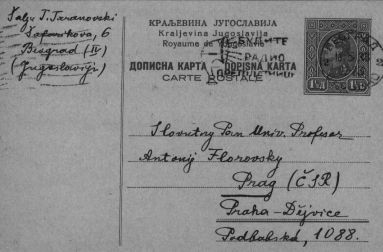 Šalje T. Taranovski
6
Beograd (IV)
(Jugoslavija)
КРАЉЕВИНА ЈУГОСЛАВИЈА
Kraljevina Jugoslavija
Royaume de Yougoslavie
ДОПИСНА КАРТА DOPISNA KARTA
CARTE POSTALE
БУДИТЕ
РАДИО
Slovutný Pan Univ. Profesor
Antonij Florovsky
Prag (ČSR)
Praha - Dějvice
Podbabska, 1088.